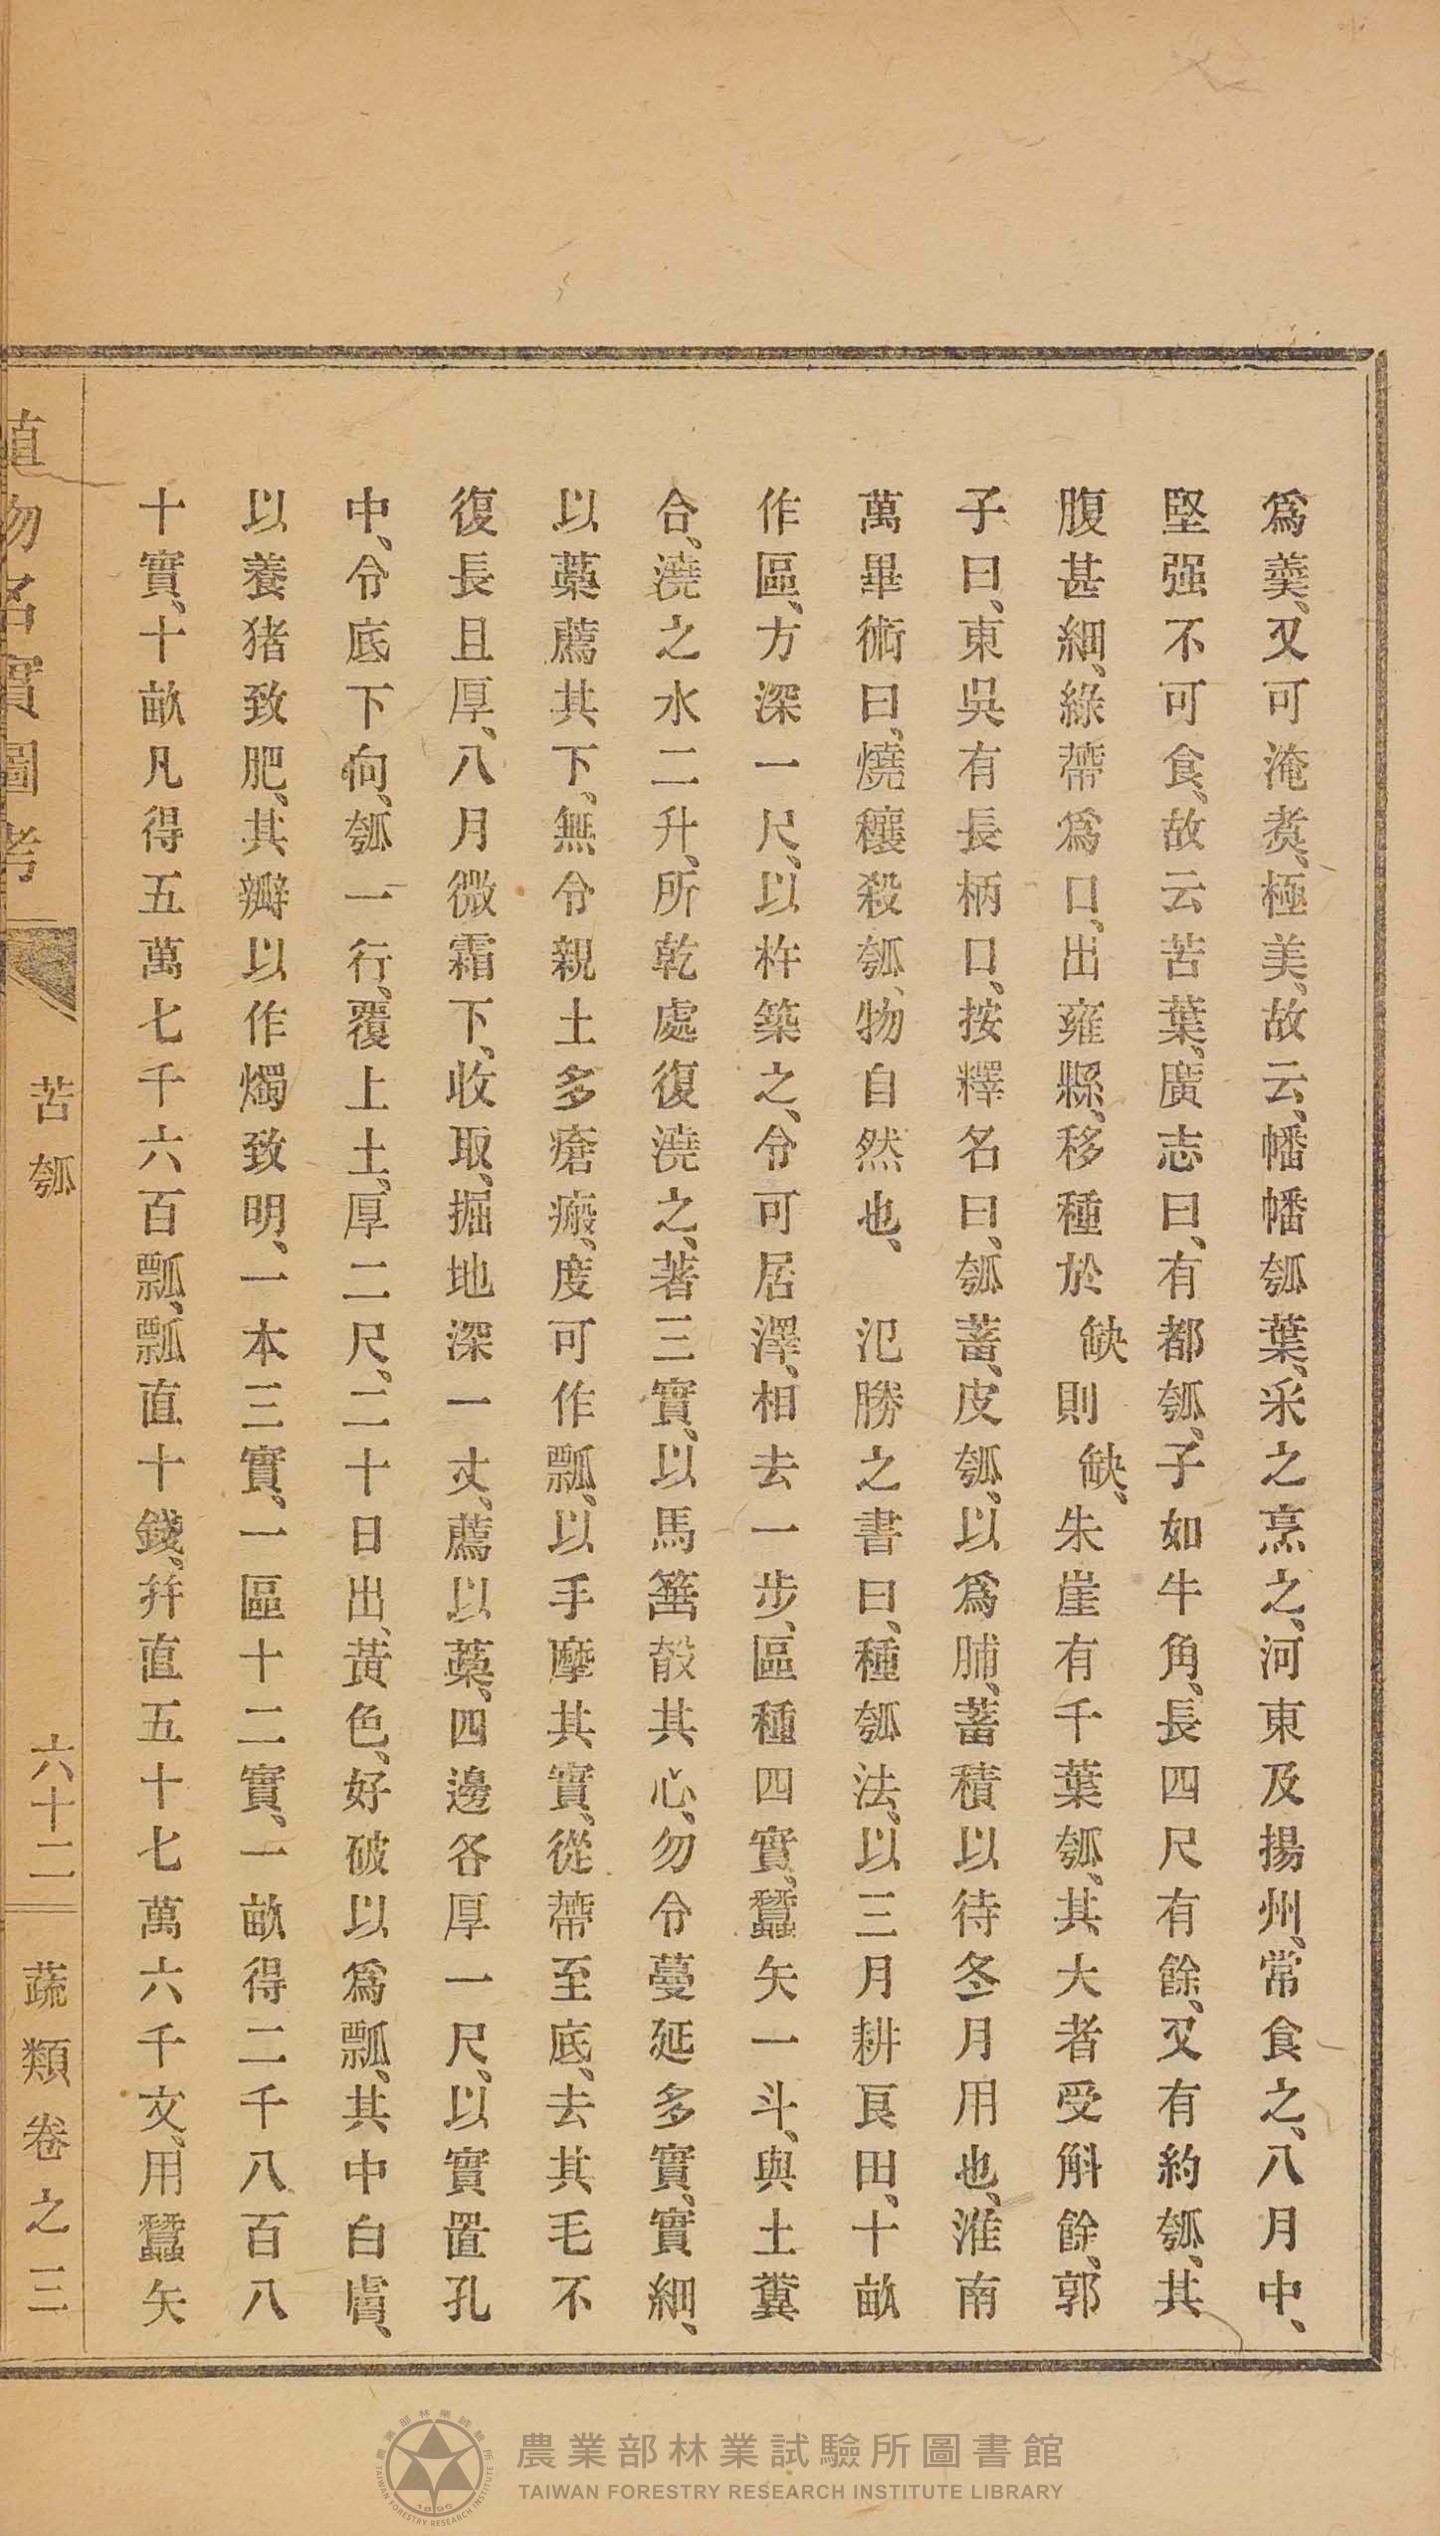 爲羹、又可淹煑、極美、故云、幡幡瓠葉、采之烹之、河東及揚州、常食之、八月中、
堅强不可食、故云苦葉、廣志曰、有都瓠、子如牛角、長四尺有餘、又有約瓠、其
腹甚細、綠蔕爲口、出雍縣、移種於缺則缺、朱崖有千葉瓠、其大者受斛餘、郭
子曰、東吳有長柄口、按釋名曰、瓠蓄、皮瓠、以爲脯、蓄積以待冬月用也、淮南
萬畢術曰、燒穰殺瓠、物自然也、　氾勝之書曰、種瓠法、以三月耕良田、十畝
作區、方深一尺、以杵築之、令可居澤、相去一步、區種四實、蠶矢一斗、與土糞
合、澆之水二升、所乾處復澆之、著三實、以馬箠㱿其心、勿令蔓延多實、實細、
以藁薦其下、無令親土多瘡瘢、度可作瓢、以手摩其實、從蔕至底、去其毛不
復長且厚、八月微霜下、收取、掘地深一丈、薦以藁、四邊各厚一尺、以實置孔
中、令底下向、瓠一行、覆上土、厚二尺、二十日出、黃色、好破以爲瓢、其中白膚、
以養猪致肥、其瓣以作燭致明、一本三實、一區十二實、一畝得二千八百八
十實、十畝凡得五萬七千六百瓢、瓢直十錢、幷直五十七萬六千文、用蠶矢
植物名實圖考　苦瓠　六十二　蔬類卷之三
農業部林業試驗所圖書館
TAIWAN FORESTRY RESEARCH INSTITUTE LIBRARY
農業部林業試驗所
TAIWAN FORESTRY RESEARCH INSTITUTE
1896